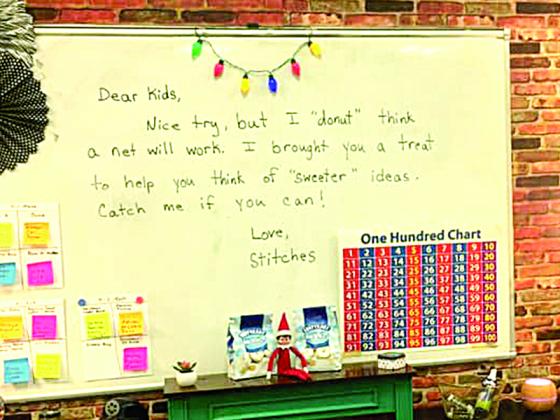 Dear Kids,
Nice try, but I "donut" think
a net will work. I brought you a treat
to help you think of "sweeter" ideas.
Catch me if you can!
Love,
Stitches
One Hundred Chart
1 2 3 4 5 6 7 8 9 10
11 12 13 14 15 16 17 18 19 20
21 22 23 24 25 26 27 28 29 30
31 32 33 34 35 36 37 38 39 40
41 42 43 44 45 46 47 48 49 50
51 52 53 54 55 56 57 58 59 60
61 62 63 64 65 66 67 68 69 70
71 72 73 74 75 76 77 78 79 80
81 82 83 84 85 86 87 88 89 90
91 92 93 94 95 96 97 98 99 100